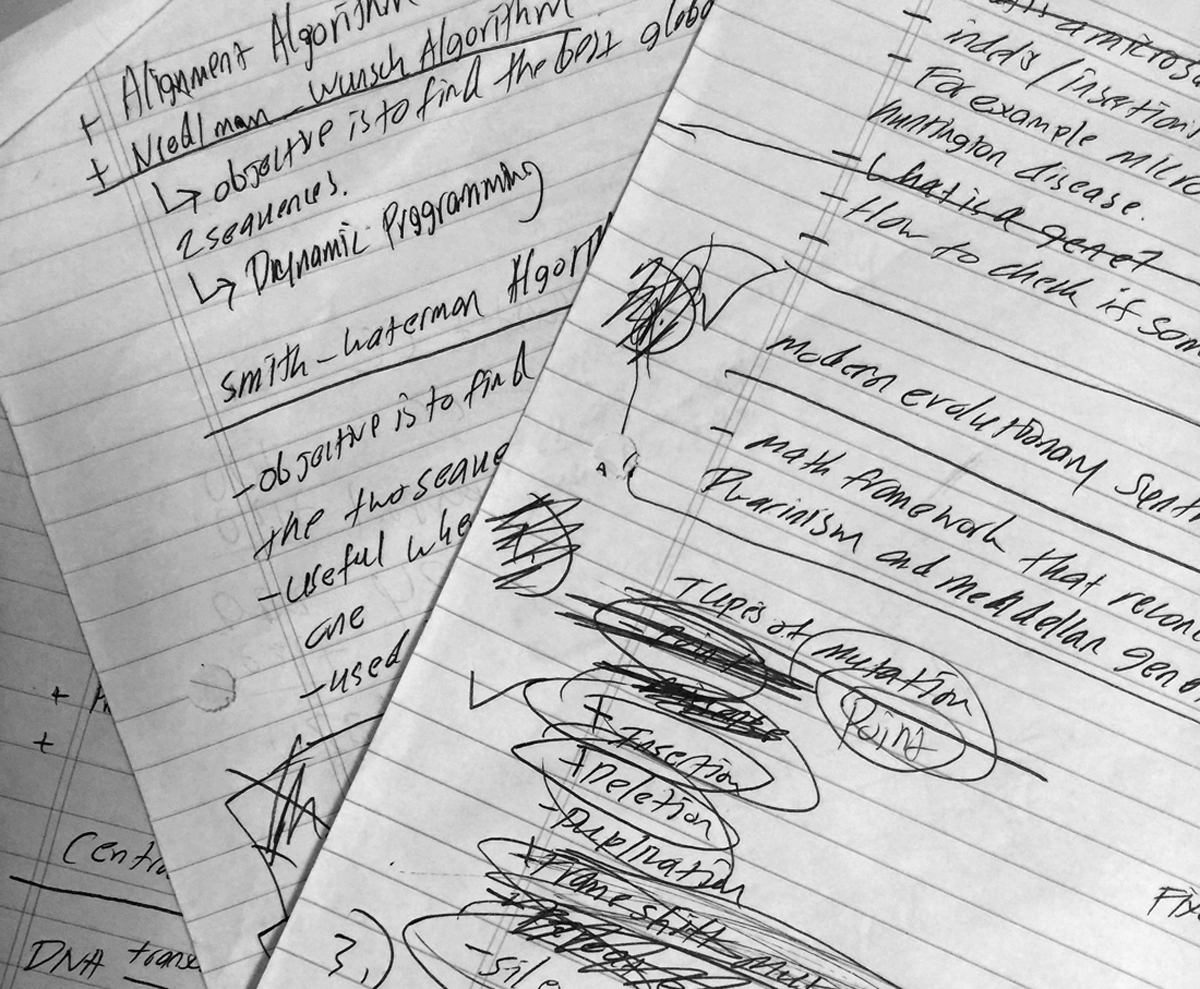 + Alignment Algorithm
+ Niedlman-Wunsch Algorithm
↳ objective is to find the best globa
2 sequences.
↳ Dynamic Programming
Smith-waterman Algorith
- objective is to find
the two seque
- useful whe
one
- used
+
+
Centra
DNA trans
- indels/insertion
- For example micro
Huntington disease.
- What is a gene?
- How to check if som
-
modern evolutionary synt
- math framework that recon
Dwarinism and mendellan gene
Types of mutation
Point
- Point
- Insertion
- Deletion
- Duplication
- Frame shift
- sile
3.
Fix